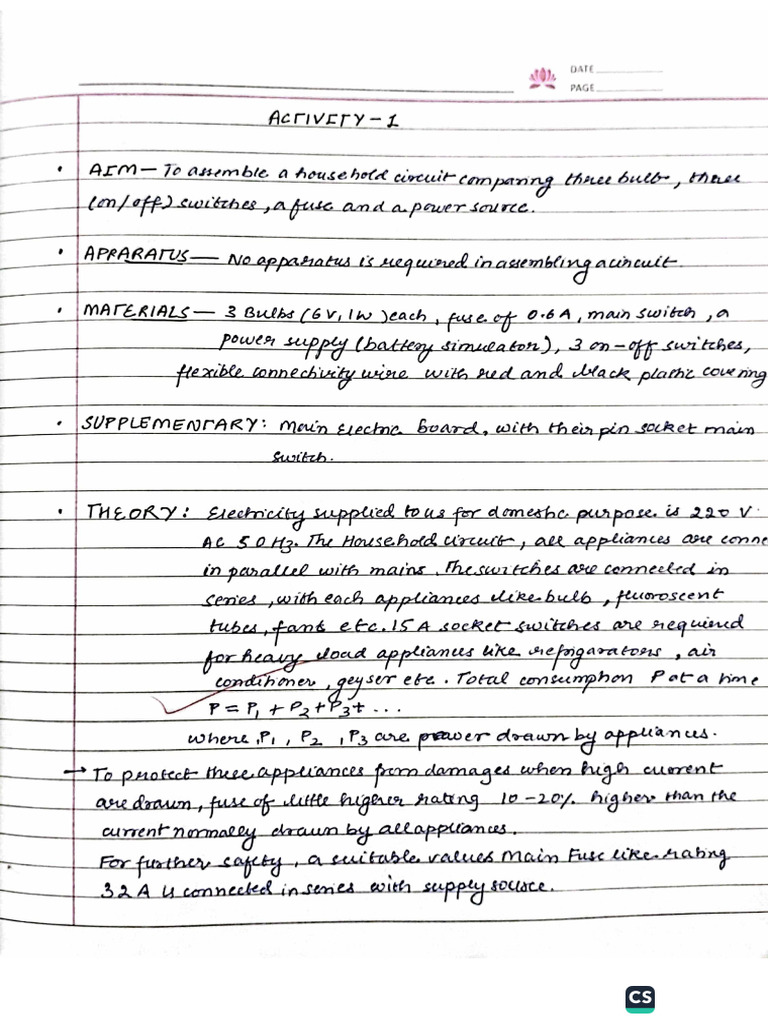 DATE
PAGE
ACTIVITY-1
• AIM - To assemble a household circuit comparing three bulb, three
(on/off) switches, a fuse and a power source.
• APPARATUS - No apparatus is required in assembling a circuit.
• MATERIALS - 3 Bulbs (6V, 1W) each, fuse of 0.6 A, main switch, a
power supply (battery simulator), 3 on-off switches,
flexible connectivity wire with red and black plastic covering
• SUPPLEMENTARY: Main electric board, with their pin socket main
switch.
• THEORY: Electricity supplied to us for domestic purpose is 220 V
AC 50 Hz. The Household circuit, all appliances are conne
in parallel with mains. The switches are connected in
series, with each appliances like bulb, fluoroscent
tubes, fans etc. 15 A socket switches are required
for heavy load appliances like refrigarators, air
conditioner, geyser etc. Total consumption P at a time
P = P1 + P2 + P3 + ...
where, P1, P2, P3 are power drawn by appliances.
→ To protect these appliances from damages when high current
are drawn, fuse of little higher rating 10-20% higher than the
current normally drawn by all appliances.
For further safety, a suitable values Main Fuse like rating
32 A is connected in series with supply source.
CS